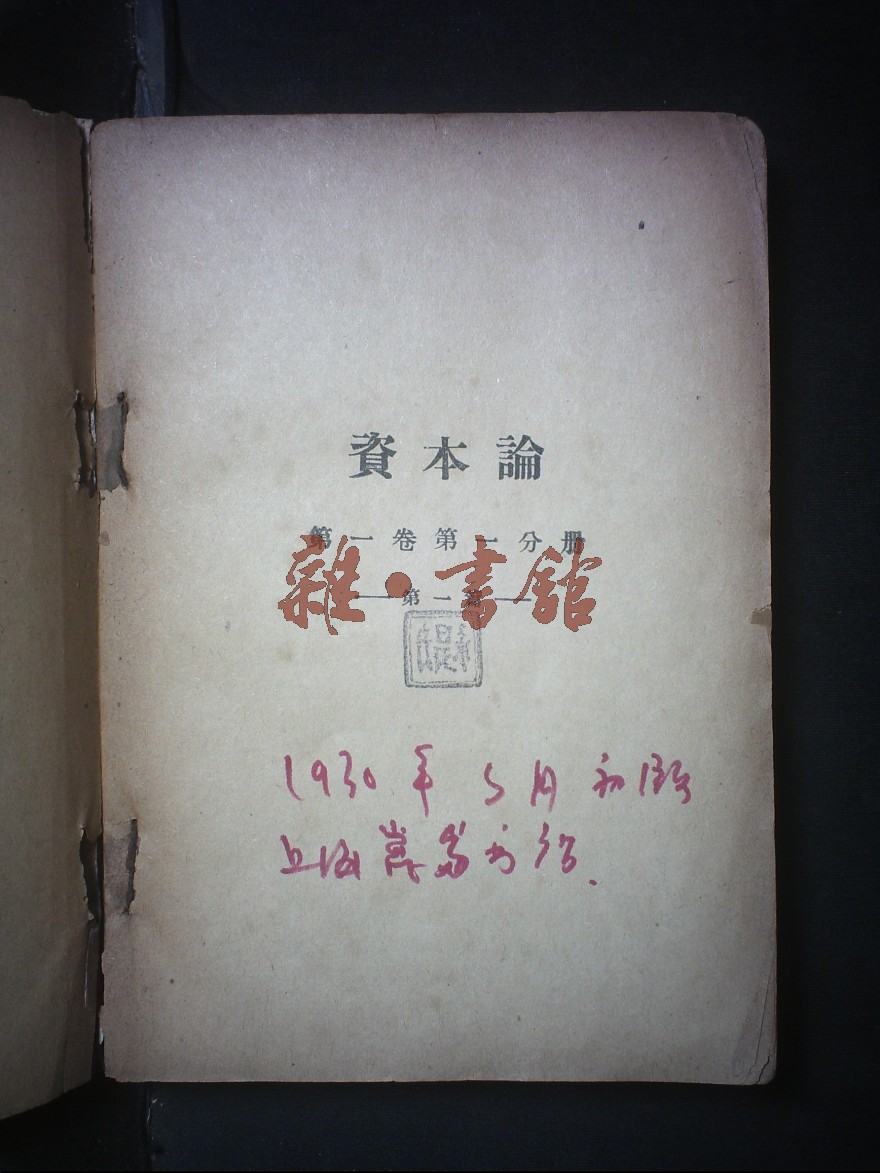 資本論
第一卷第一分册
雜•書館
第一篇
1930年 月初版
上海崑崙书店.